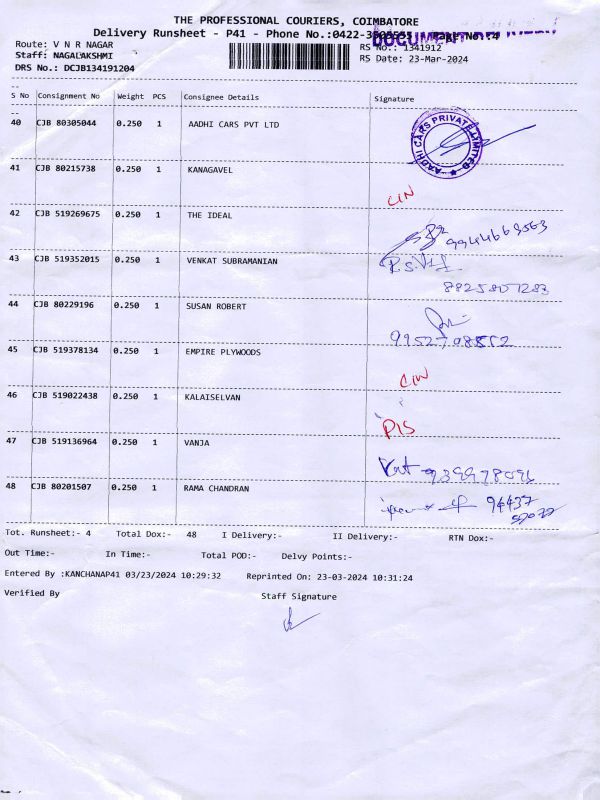 THE PROFESSIONAL COURIERS, COIMBATORE
Delivery Runsheet - P41 - Phone No.:0422-3
Route: V N R NAGAR
RS No.: 1341912
Staff: NAGALAKSHMI
RS Date: 23-Mar-2024
DRS No.: DCJB134191204
S No Consignment No Weight PCS Consignee Details Signature
40 CJB 80305044 0.250 1 AADHI CARS PVT LTD
AADHI CARS PRIVATE LIMITED
41 CJB 80215738 0.250 1 KANAGAVEL
CIN
42 CJB 519269675 0.250 1 THE IDEAL
43 CJB 519352015 0.250 1 VENKAT SUBRAMANIAN
8825807283
44 CJB 80229196 0.250 1 SUSAN ROBERT
45 CJB 519378134 0.250 1 EMPIRE PLYWOODS
CIN
46 CJB 519022438 0.250 1 KALAISELVAN
PIS
47 CJB 519136964 0.250 1 VANJA
48 CJB 80201507 0.250 1 RAMA CHANDRAN
94437
Tot. Runsheet:- 4 Total Dox:- 48 I Delivery:- II Delivery:- RTN Dox:-
Out Time:- In Time:- Total POD:- Delvy Points:-
Entered By :KANCHANAP41 03/23/2024 10:29:32 Reprinted On: 23-03-2024 10:31:24
Verified By Staff Signature